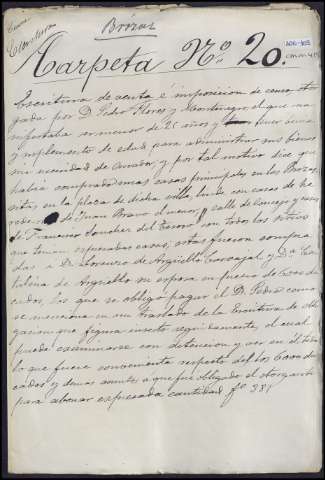 Brozas
Carpeta Nº 20.
Escritura de venta é imposicion de censo otor
gada por D. Pedro Flores y el que ma
nifestaba ser menor de 25 años y tener
y suplemento de edad para administrar sus bienes
sin necesidad de Curador, y por tal motivo dice que
habia comprado unas casas principales en las Brozas,
sitas en la plaza de dicha villa, linde con casas de he
rederos de Juan Bravo el menor, y calle de Concejo y casas
de Francisco Sanchez del Tesoro con todos los sitios
que tenian espresadas casas, estas fueron compra
das á D. Lorenzo de Argüello Carvajal y Dª Ca
talina de Argüello su esposa en precio de
cados, los que se obligó pagar el D. Pedro como
se menciona en un traslado de la Escritura de obli
gacion que figura inserto seguidamente, el cual
puede examinarse con detencion y ver en él todo
lo que fuere conveniente respecto del
cados y demas á que fué obligado el otorgante
para abonar espresada cantidad fº 381